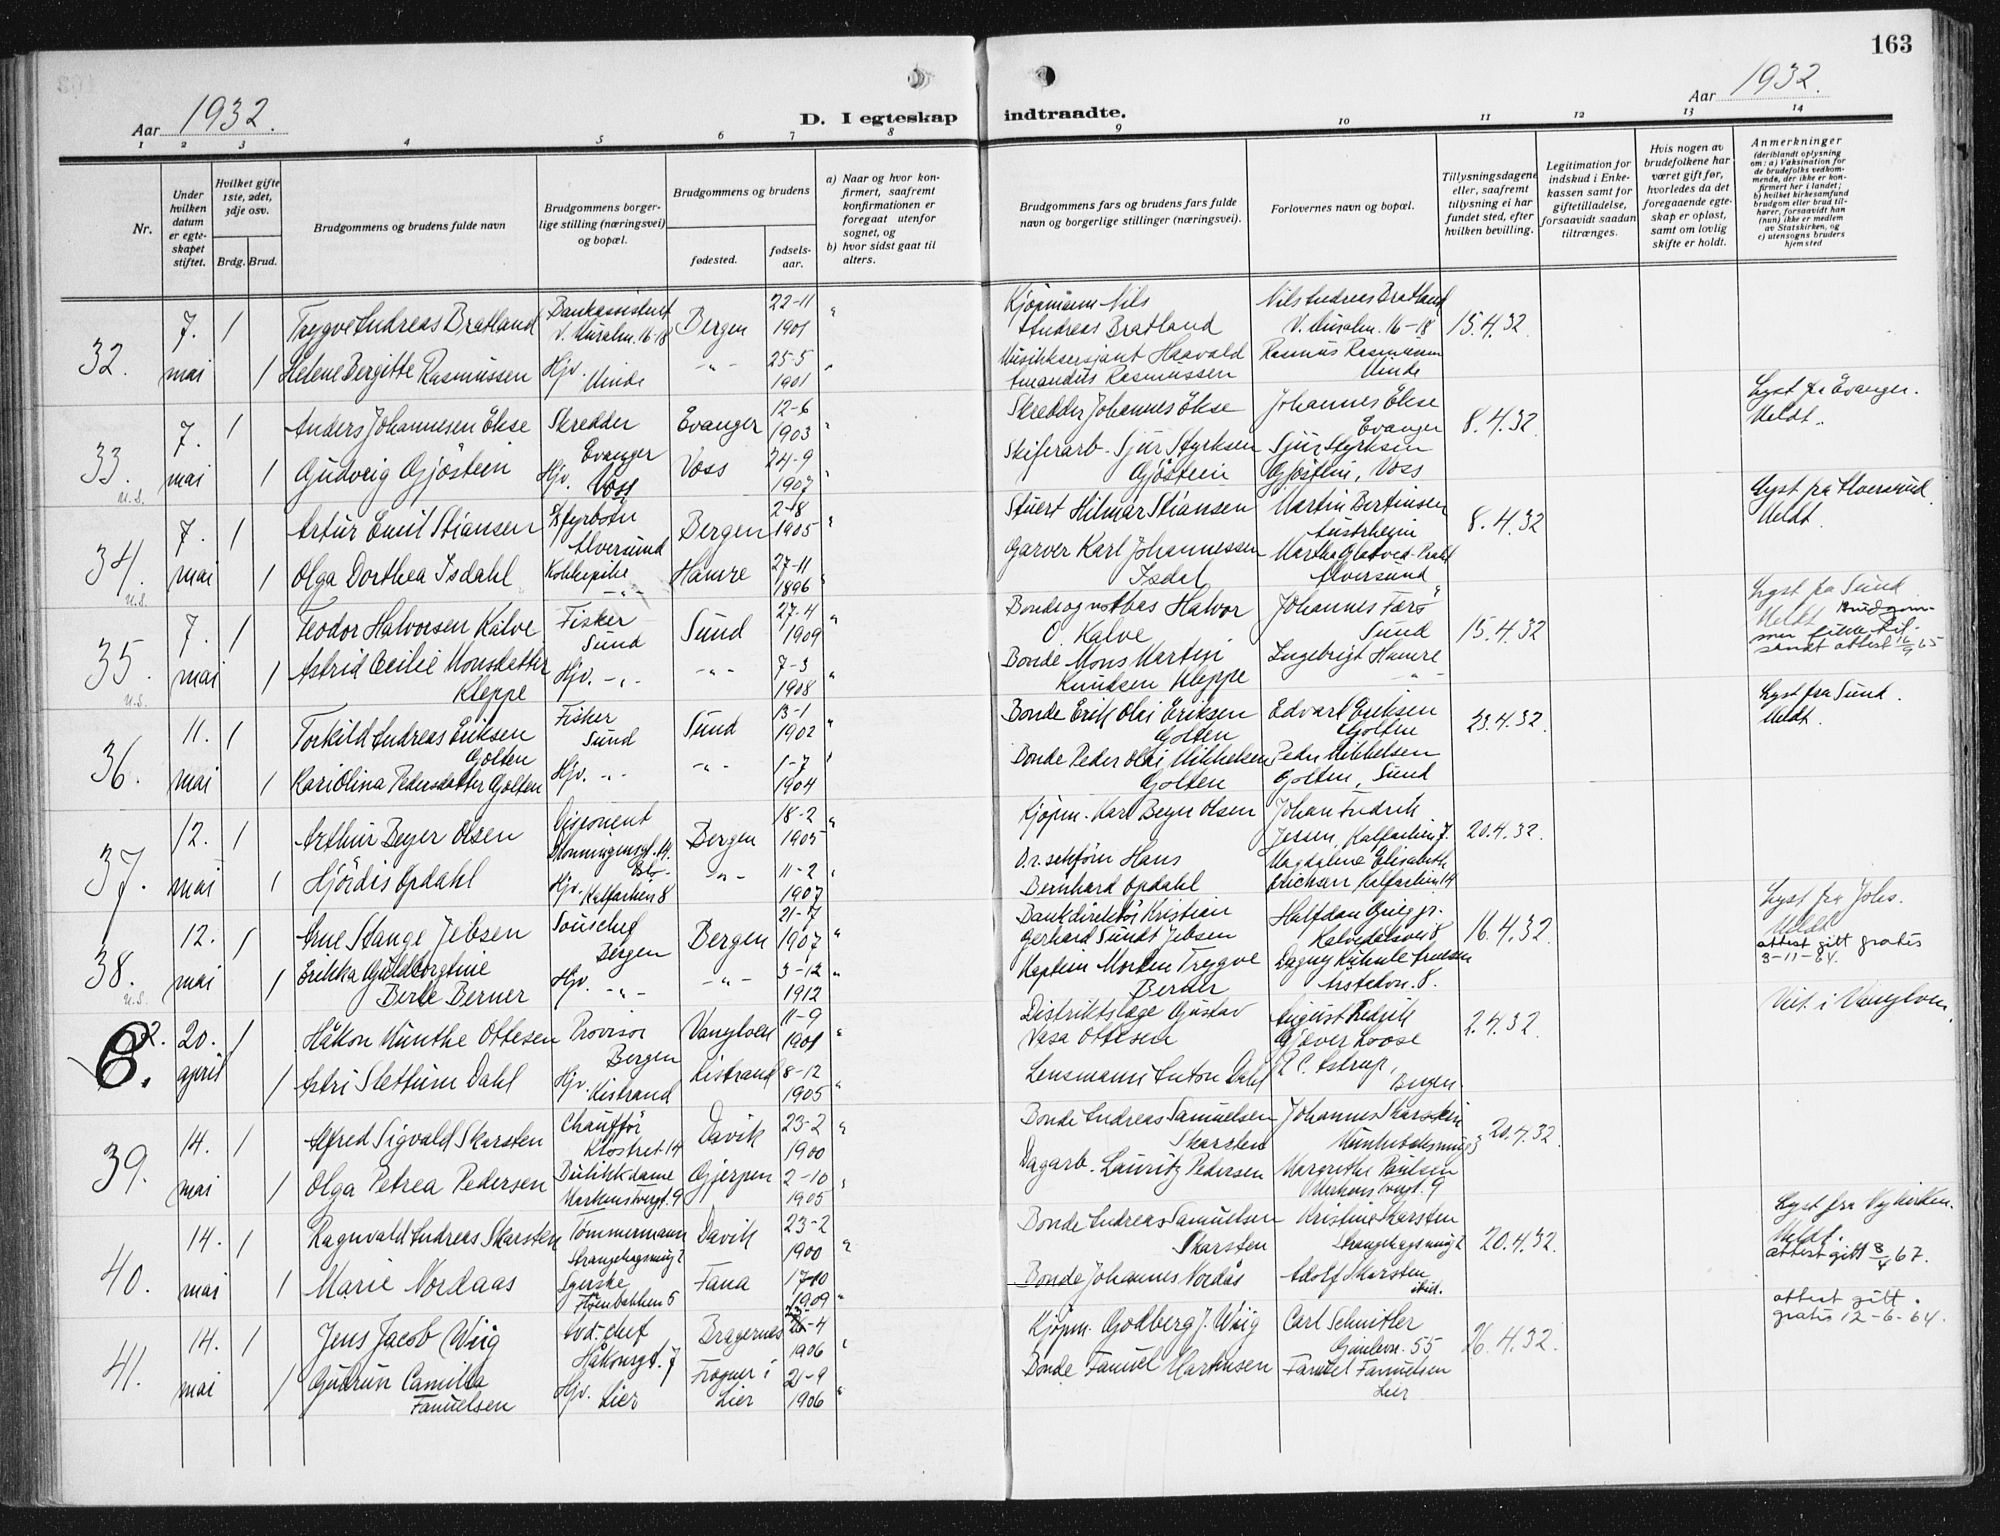 163
Aar 1932.
D. I egteskap indtraadte.
Aar 1932.
1 2 3 4 5 6 7 8 9 10 11 12 13 14
Nr.
Under hvilken datum er egteskapet stiftet.
Hvilket gifte 1ste, 2det, 3dje osv.
Brdg. Brud.
Brudgommens og brudens fulde navn
Brudgommens borgerlige stilling (næringsvei) og bopæl.
Brudgommens og brudens
fødested.
fødselsaar.
a) Naar og hvor konfirmert, saafremt konfirmationen er foregaat utenfor sognet, og
b) hvor sidst gaat til alters.
Brudgommens fars og brudens fars fulde navn og borgerlige stillinger (næringsvei).
Forlovernes navn og bopæl.
Tillysningsdagene eller, saafremt tillysning ei har fundet sted, efter hvilken bevilling.
Legitimation for indskud i Enkekassen samt for giftetilladelse, forsaavidt saadan tiltrænges.
Hvis nogen av brudefolkene har været gift før, hvorledes da det foregaaende egteskap er opløst, samt om lovlig skifte er holdt.
Anmerkninger
(deriblandt oplysning om: a) Vaksination for de brudefolks vedkommende, der ikke er konfirmert her i landet; b) hvilket kirkesamfund brudgom eller brud tilhører, forsaavidt han (hun) ikke er medlem av Statskirken, og c) utensogns bruders hjemsted
32. 7. mai 1 Trygve Andreas Bratland Bankassistent Bergen 22-11 1901 " Kjøpmann Nils Andreas Bratland Nils Andreas Bratland 16-18 15.4.32
1 Helene Bergitte Rasmussen Hjv. Minde -"- 25-5 1901 " Musikksersjant Haavald Amandus Rasmussen Rasmus Rasmussen Minde
33. u.s. 7. mai 1 Anders Johannesen Ekse Skredder Evanger Evanger 12-6 1903 " Skredder Johannes Ekse Johannes Ekse Evanger 8.4.32 Lyst fra Evanger. Meldt.
1 Gudveig Gjøstein Hjv. Voss Voss 24-9 1907 " Skiferarb. Sjur Styrksen Gjøstein Sjur Styrksen Gjøstein, Voss
34. u.s. 7. mai 1 Artur Emil Stiansen Alversund Bergen 2-8 1905 " Stuert Hilmar Stiansen Martin Bertinsen Austrheim 8.4.32 Lyst fra Alversund. Meldt.
1 Olga Dorthea Isdahl Kokkepike -"- Hamre 27-11 1896 " Garver Karl Johannessen Isdal Alversund
35. u.s. 7. mai 1 Teodor Halvorsen Kalve Fisker Sund Sund 27-4 1909 " Halvor O. Kalve Johannes Færø Sund 15.4.32 Lyst fra Sund Meldt
1 Astrid Cecilie Monsdatter Kleppe Hjv. -"- -"- 7-3 1908 " Bonde Mons Martin Knudsen Kleppe Ingebrigt Hamre -"-
36. 11. mai 1 Torkild Andreas Eriksen Golten Fisker Sund Sund 13-1 1902 " Bonde Erik Olai Eriksen Golten Edvart Eriksen Golten 23.4.32 Lyst fra Sund. Meldt.
1 Kari Olina Pedersdatter Golten Hjv. -"- -"- 1-7 1904 " Bonde Peder Olai Mikkelsen Golten Peder Mikkelsen Golten, Sund
37. 12. mai 1 Arthur Beyer Olsen Disponent Bergen 18-2 1905 " Kjøpm. Karl Beyer Olsen Johan Fredrik Jessen, Kalfarlien 7. 20.4.32.
1 Hjördis Opdahl Hjv. Kalfarlien 8 -"- 11-2 1907 " O.r. sakfører Hans Bernhard Opdahl Magdalene Elisabeth Kalfarlien 14
38. u.s. 12. mai 1 Arne Stange Jebsen Souschef Bergen Bergen 21-7 1907 " Bankdirektör Kristian Gerhard Sundt Jebsen Halfdan Grieg jr. Kalvedalsvei 8 16.4.32. Lyst fra Johs. Meldt attest gitt gratis 3-11-64.
1 Erikka Guldborgtine Berle Berner Hjv. -"- -"- 3-12 1912 " Kaptein Morten Trygve Berner Årstadvn. 8.
2. 6. 20. april 1 Håkon Munthe Ottesen Provisor Bergen Vanylven 11-9 1901 " Distriktslæge Gustav Vasa Ottesen August Fredrik Gjæver Loose 2.4.32. Viet i Vanylven.
1 Astri Slettum Dahl Hjv. Kistrand Kistrand 8-12 1905 " Lensmann Anton Dahl Bergen
39. 14. mai 1 Alfred Sigvald Skarsten Chauffør Klostret 14 Davik 23-2 1900 " Bonde Andreas Samuelsen Skarsten Johannes Skarstein 20.4.32.
1 Olga Petrea Pedersen Butikkdame Gjerpen 2-10 1905 " Dagarb. Lauritz Pedersen Margrethe Paulsen
40. 14. mai 1 Ragnvald Andreas Skarsten Tømmermann Davik 23-2 1900 " Bonde Andreas Samuelsen Skarsten Kristine Skarsten 20.4.32. Lyst fra Nykirken. Meldt. attest gitt 8/4 67.
1 Marie Nordaas Syerske Fana 17-10 1909 " Bonde Johannes Nordås Adolf Skarsten ibid.
41. 14. mai 1 Jens Jacob Wiig Avd.-chef Håkonsgt. 7 Bragernes 1906 " Kjøpm. Godberg J. Wiig Carl Schnitler 55 26.4.32. attest gitt gratis 12-6-64.
1 Gudrun Camilla Fanuelsen Hjv. Lier Frogner i Lier 21-9 1906 " Bonde Fanuel Martinsen Fanuel Fanuelsen Lier